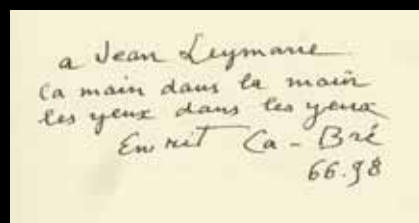 a Jean Leymarie
la main dans la main
les yeux dans les yeux
En rit Ca - Bré
66.98